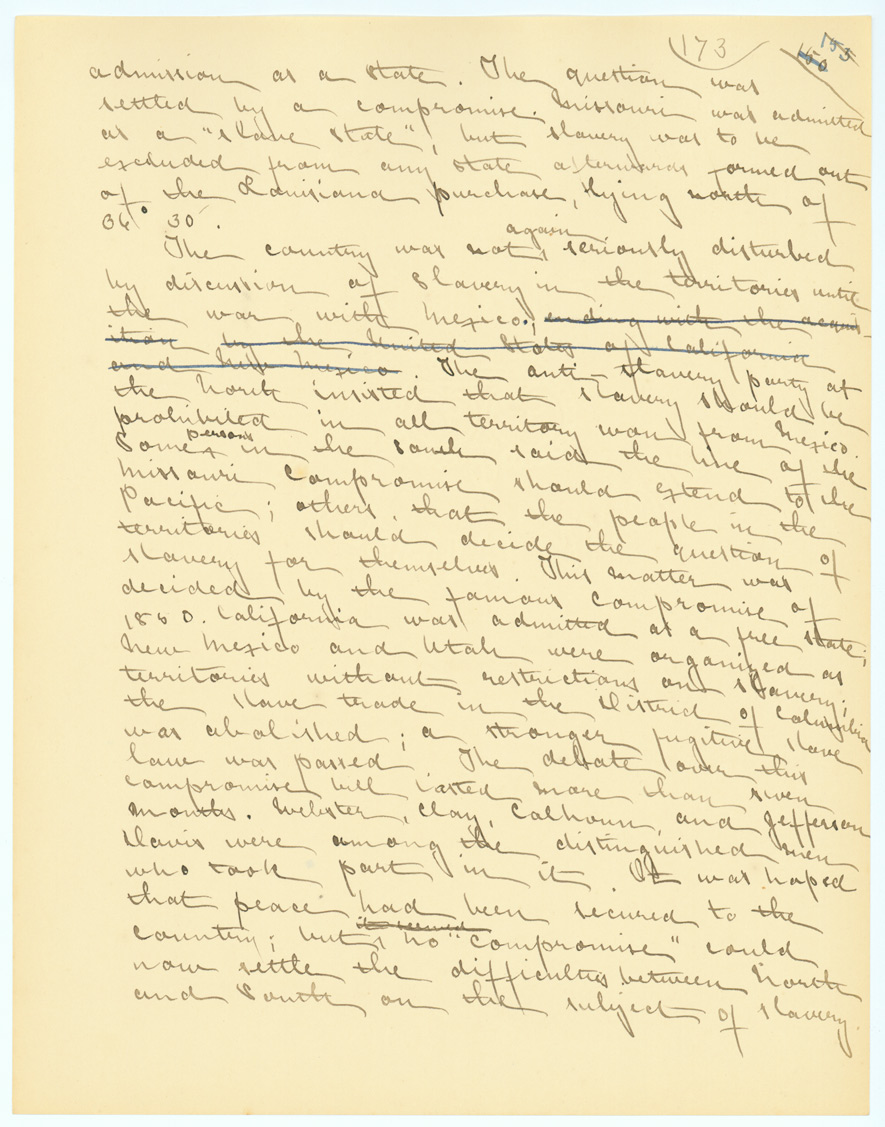 173
153
150
admission as a state. The question was
settled by a compromise. Missouri was admitted
as a "slave state", but slavery was to be
excluded from any state afterwards formed out
of the Louisiana purchase, lying north of
36° 30'.
again
The country was not seriously disturbed
by discussion of slavery in the territories until
the war with Mexico, ending with the acquis-
ition by the United States of California
and New Mexico. The anti-slavery party at
the North insisted that slavery should be
prohibited in all territory won from Mexico.
persons
Some in the South said the line of the
Missouri Compromise should extend to the
Pacific; others, that the people in the
territories should decide the question of
slavery for themselves. This matter was
decided by the famous compromise of
1850. California was admitted as a free state;
New Mexico and Utah were organized as
territories without restrictions on slavery;
the slave trade in the District of Columbia
was abolished; a stronger fugitive slave
law was passed. The debate over this
compromise bill lasted more than seven
months. Webster, Clay, Calhoun, and Jefferson
Davis were among the distinguished men
who took part in it. It was hoped
that peace had been secured to the
it seemed
country; but no "compromise" could
now settle the difficulties between North
and South on the subject of slavery.